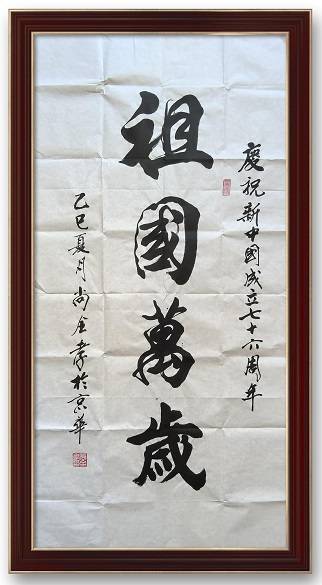 慶祝新中國成立七十六周年
祖國萬歲
乙巳夏月尚全孝於京華